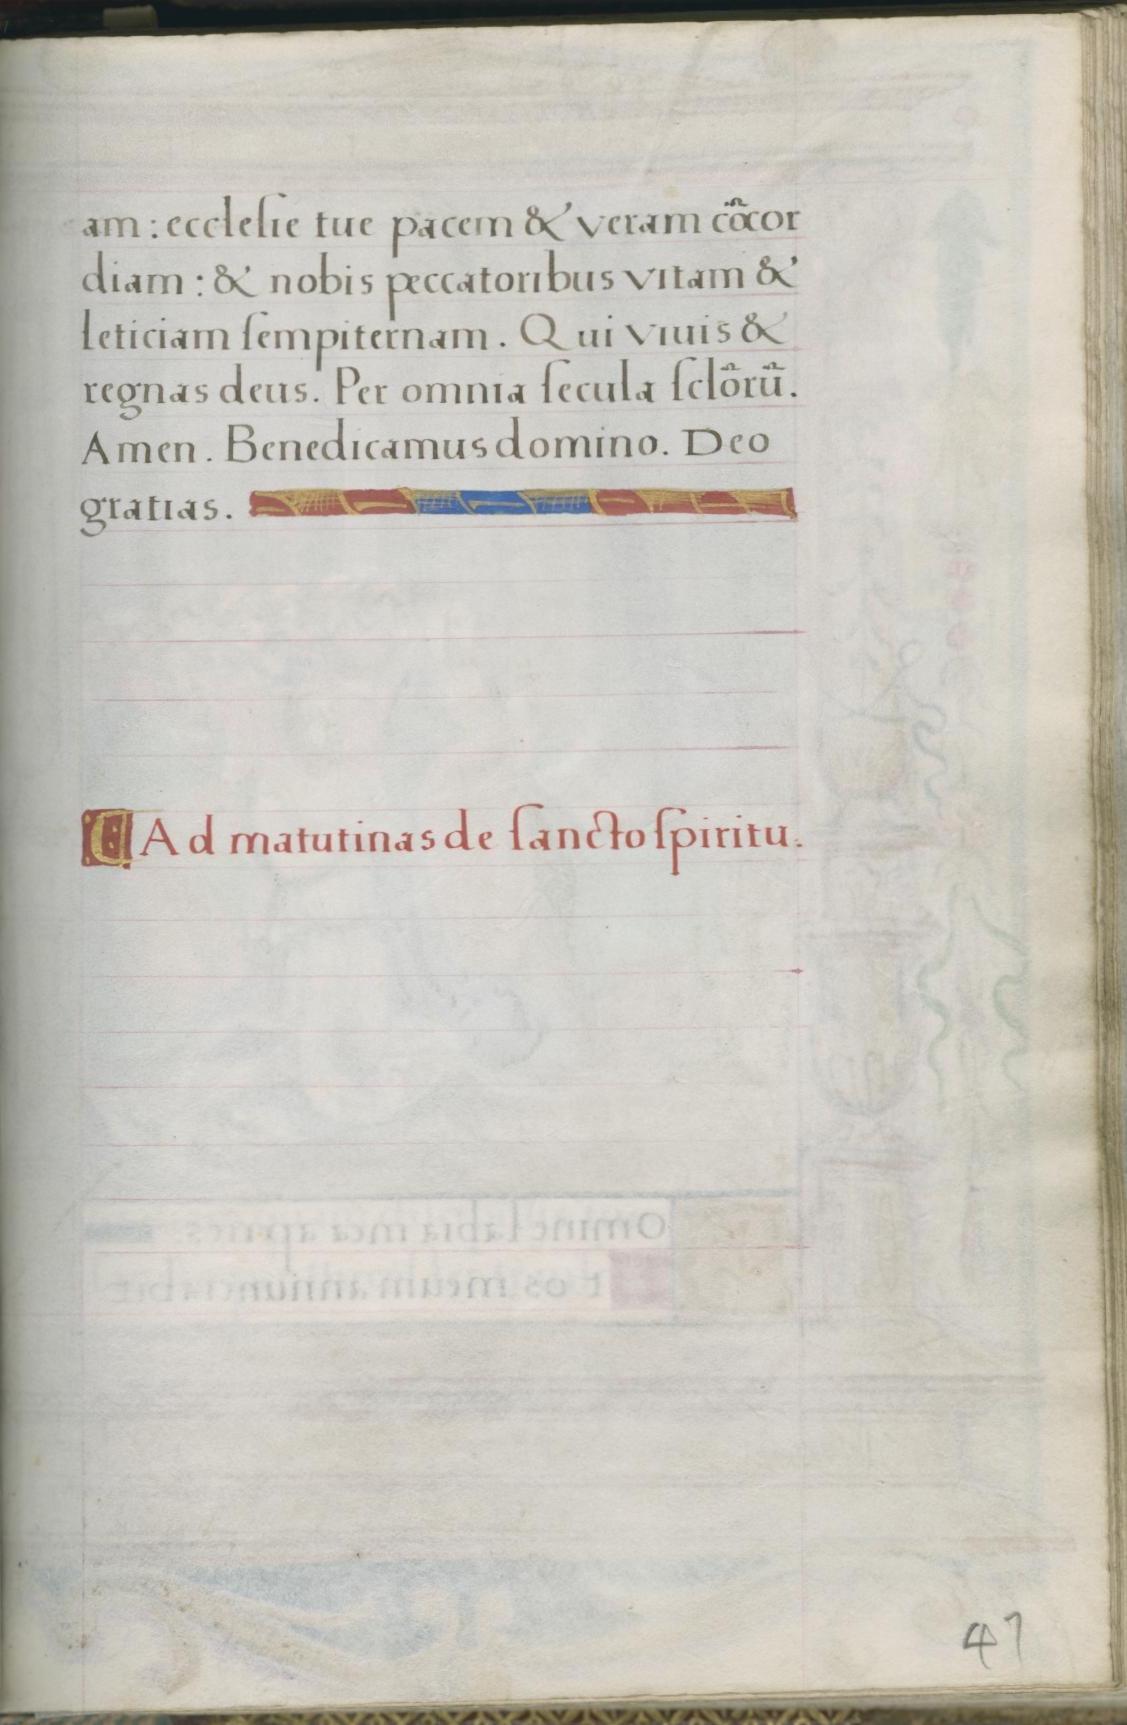 am : eccleſie tue pacem & veram cõcor
diam : & nobis peccatoribus vitam &
leticiam ſempiternam . Qui viuis &
regnas deus. Per omnia ſecula ſclõrũ.
Amen . Benedicamus domino. Deo
gratias.
Ad matutinas de ſancto ſpiritu.
Omine labia mea aperies
t os meum annunciabit
47